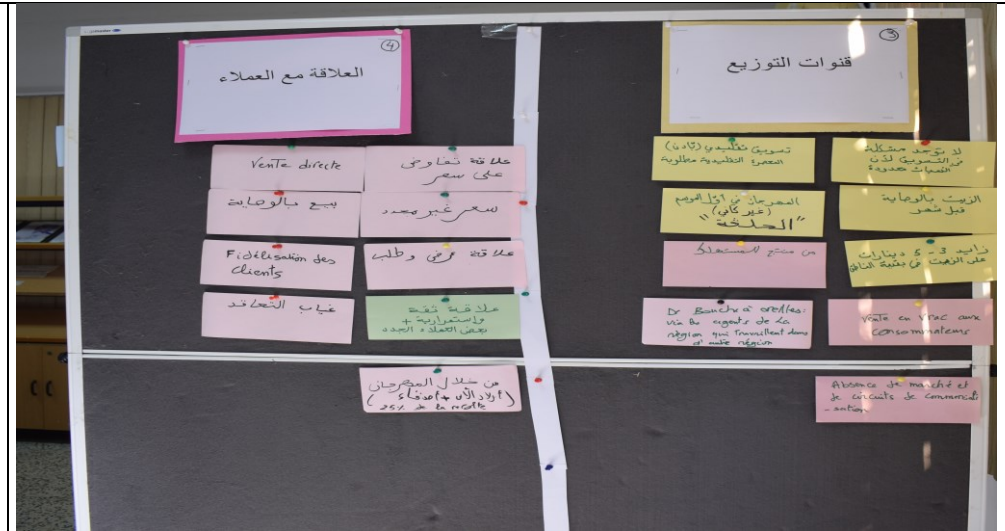 3
قنوات التوزيع
لا توجد مشكلة
في التسويق لأن
الكميات محدودة
تسويق تقليدي
المعصرة التقليدية مطلوبة
الزيت بالوصاية
قبل شهر
المهرجان في أول الموسم
(غير كافي)
"الملخة"
زايد 3 - 5 دينارات
على الزيت في بقية
من منتج للمستهلك
Vente en vrac aux
consommateurs
De Bouche à oreilles:
via les agents de la
région qui travaillent dans
d'autre région
Absence de marché et
de circuits de commerciali
-sation
4
العلاقة مع العملاء
علاقة تفاوض
على سعر
Vente directe
سعر غير محدد
بيع بالوصاية
علاقة عرض وطلب
Fidélisation des
clients
علاقة ثقة
واستمرارية +
بعض العملاء الجدد
غياب التعاقد
من خلال المهرجان
(أولاد + أصدقاء)
25% de la récolte